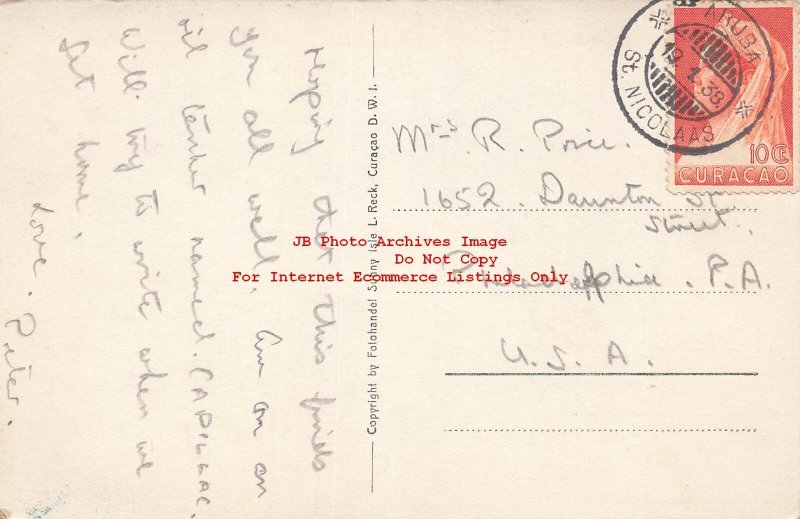 Hoping that this finds
you all well. Am on an
oil tanker named. CADILLAC.
Will try to write when we
get home.
Love. Peter.
Copyright by Fotohandel Sunny Isle L. Reck, Curaçao D. W. I.
Mrs R. Price.
1652. Daunton St
Street.
Philadelphia. P.A.
U. S. A.
ARUBA
19 1. 38.
St. NICOLAAS
10 CT
CURAÇAO
JB Photo Archives Image
Do Not Copy
For Internet Ecommerce Listings Only